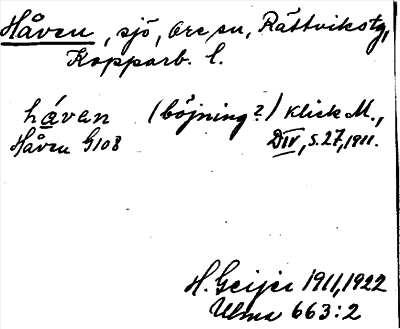 Håven, sjö, Ore sn, Rättvikstg,
Kopparb. l.
håvan (böjning?) Klick M.,
Håven G108 DIV, s. 27, 1911.
H. Geijer 1911, 1922
Ulma 663:2